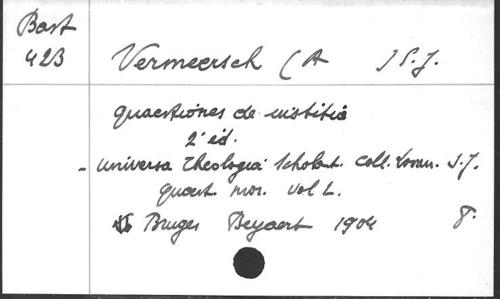 Bast
423
Vermeersch (A ) S.J.
quaestiones de iustitia
2ᵃ ed.
- universa theologia scholast. Coll. Lovan. S.J.
quaest mor. vol 1.
Bruges Beyaert 1904 8.